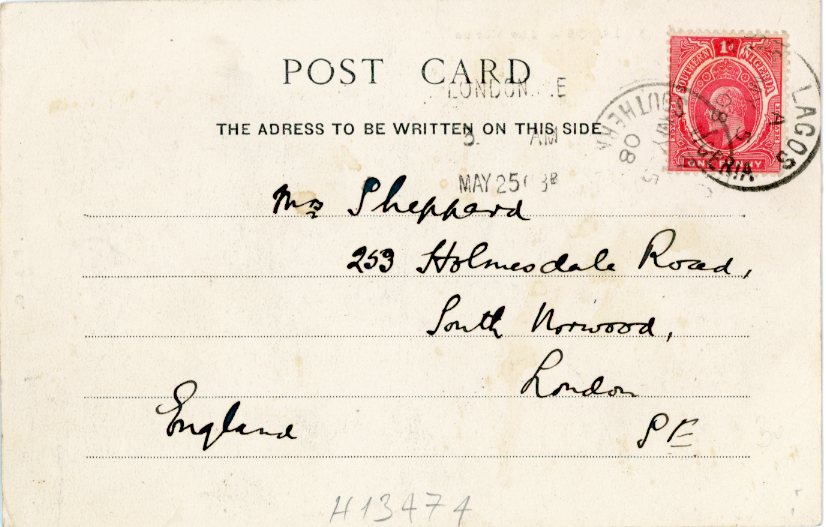 POST CARD
THE ADRESS TO BE WRITTEN ON THIS SIDE
1d
SOUTHERN NIGERIA
ONE PENNY
LAGOS
SOUTHERN NIGERIA
MY 5
08
LONDON
AM
MAY 25
Mrs Sheppard
253 Holmesdale Road,
South Norwood,
London
England SE
H13474